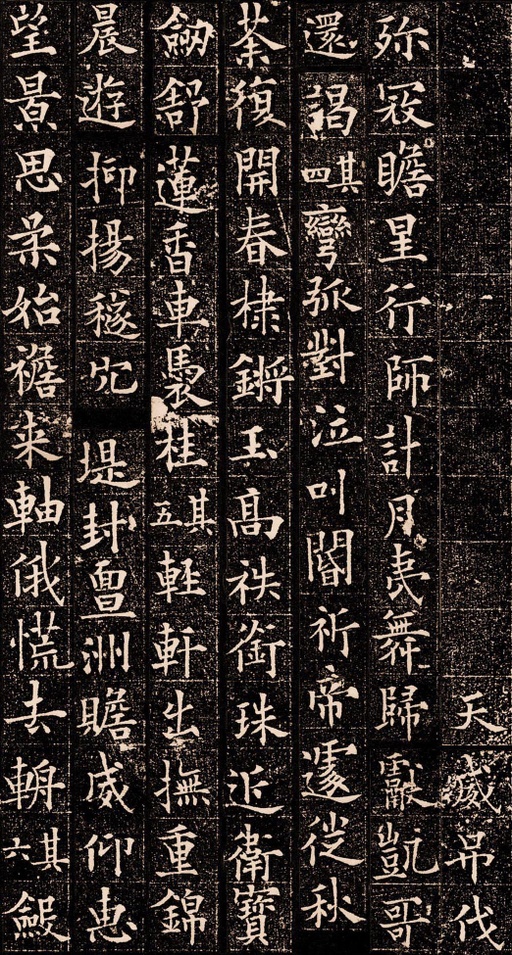 天威弔伐
弥寇瞻星行師計月夷舞歸獻凱哥
還謁其四彎弧對泣叫閽祈帝遽從秋
荼復開春棣鏘玉高袟銜珠近衛寶
劒舒蓮香車製桂其五輕軒出撫重錦
晨遊抑揚稼穴堤封亶洲瞻威仰惠
望景思柔始襜来軸俄慌去輈其六